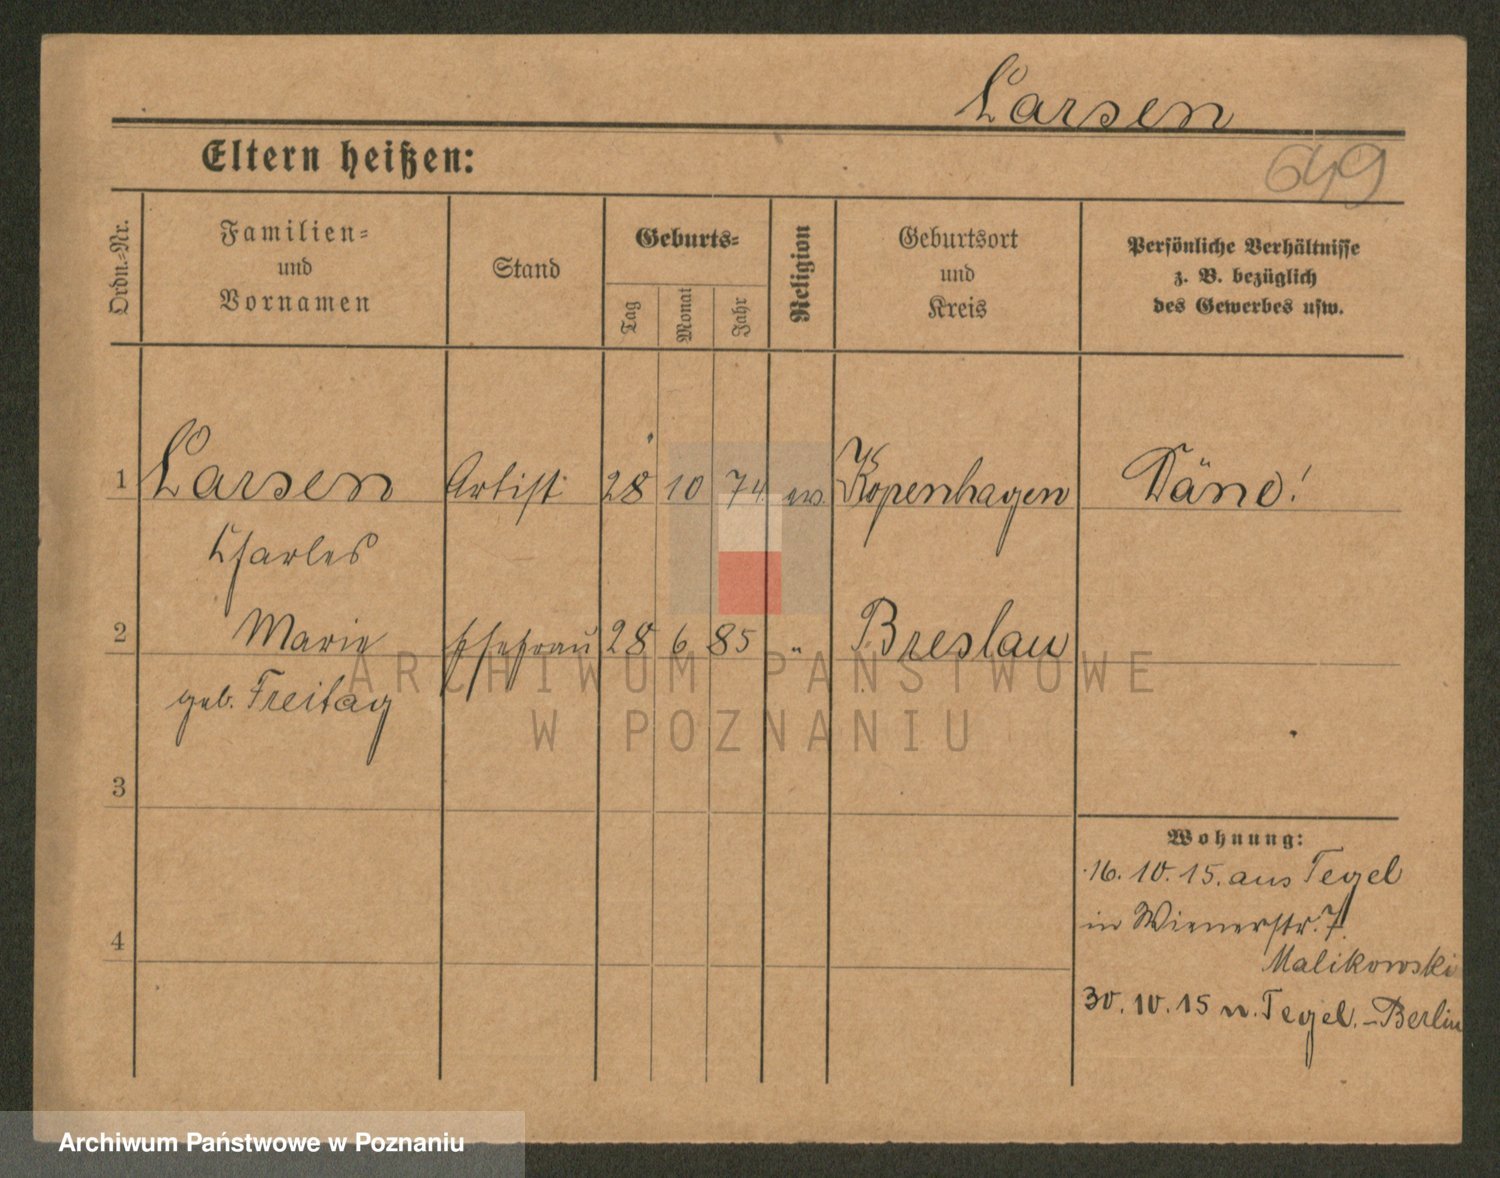 Larsen
Eltern heißen:
649
Ordn.-Nr.
Familien-
und
Vornamen
Stand
Geburts-
Tag
Monat
Jahr
Religion
Geburtsort
und
Kreis
Persönliche Verhältnisse
z. B. bezüglich
des Gewerbes usw.
1 Larsen Artist 28 10 74 ev. Kopenhagen Däne!
Charles
2 Marie Ehefrau 28 6 85 " Breslau
geb. Freitag
3
4
Wohnung:
16. 10. 15. aus Tegel
in Wienerstr. 7.
Malikowski
30. 10. 15 n. Tegel. - Berlin
ARCHIWUM PAŃSTWOWE
W POZNANIU
Archiwum Państwowe w Poznaniu